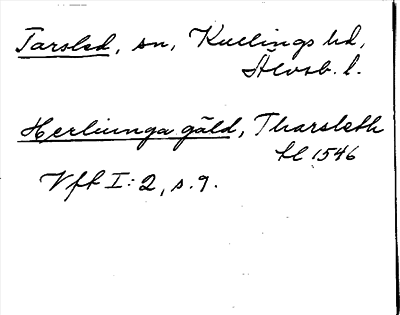 Tarsled, sn, Kullings hd,
Älvsb. l.
Herliunga gäld, Tharsleth
tl 1546
Vft I: 2, s. 9.